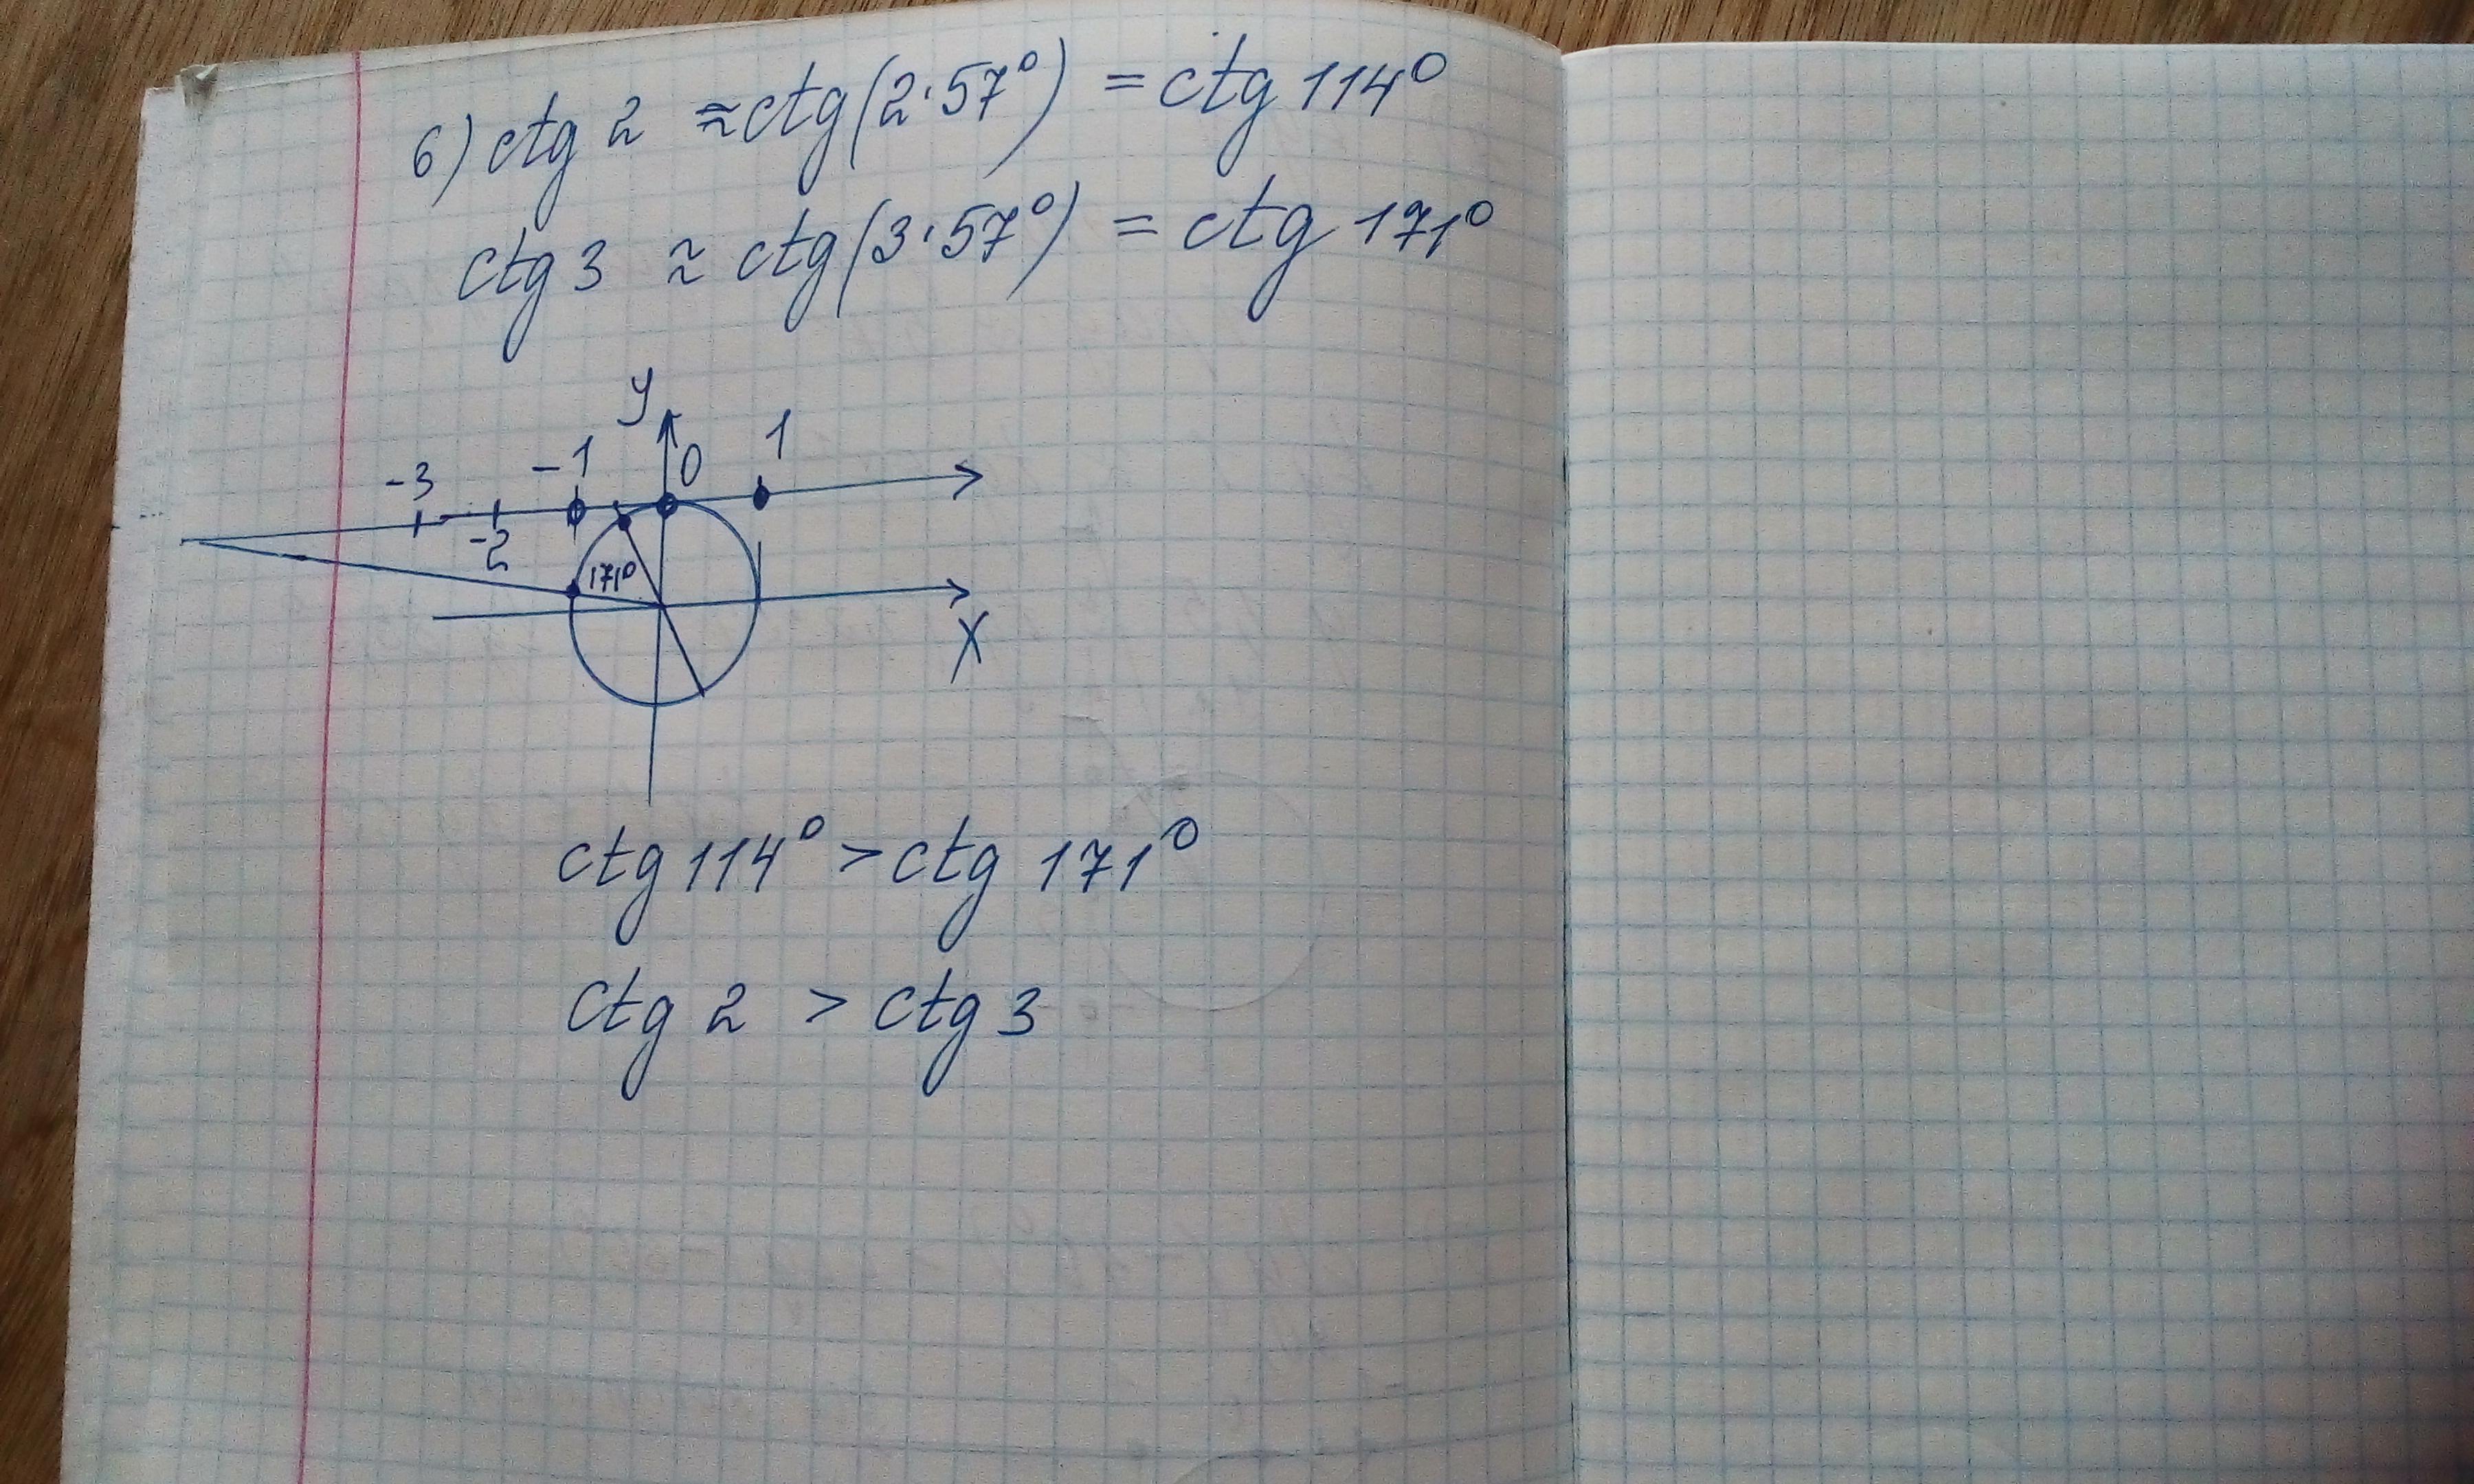 6) ctg 2 ≈ ctg(2·57°) = ctg 114°
ctg 3 ≈ ctg(3·57°) = ctg 171°
y
-3 -1 0 1
-2
171°
X
ctg 114° > ctg 171°
ctg 2 > ctg 3